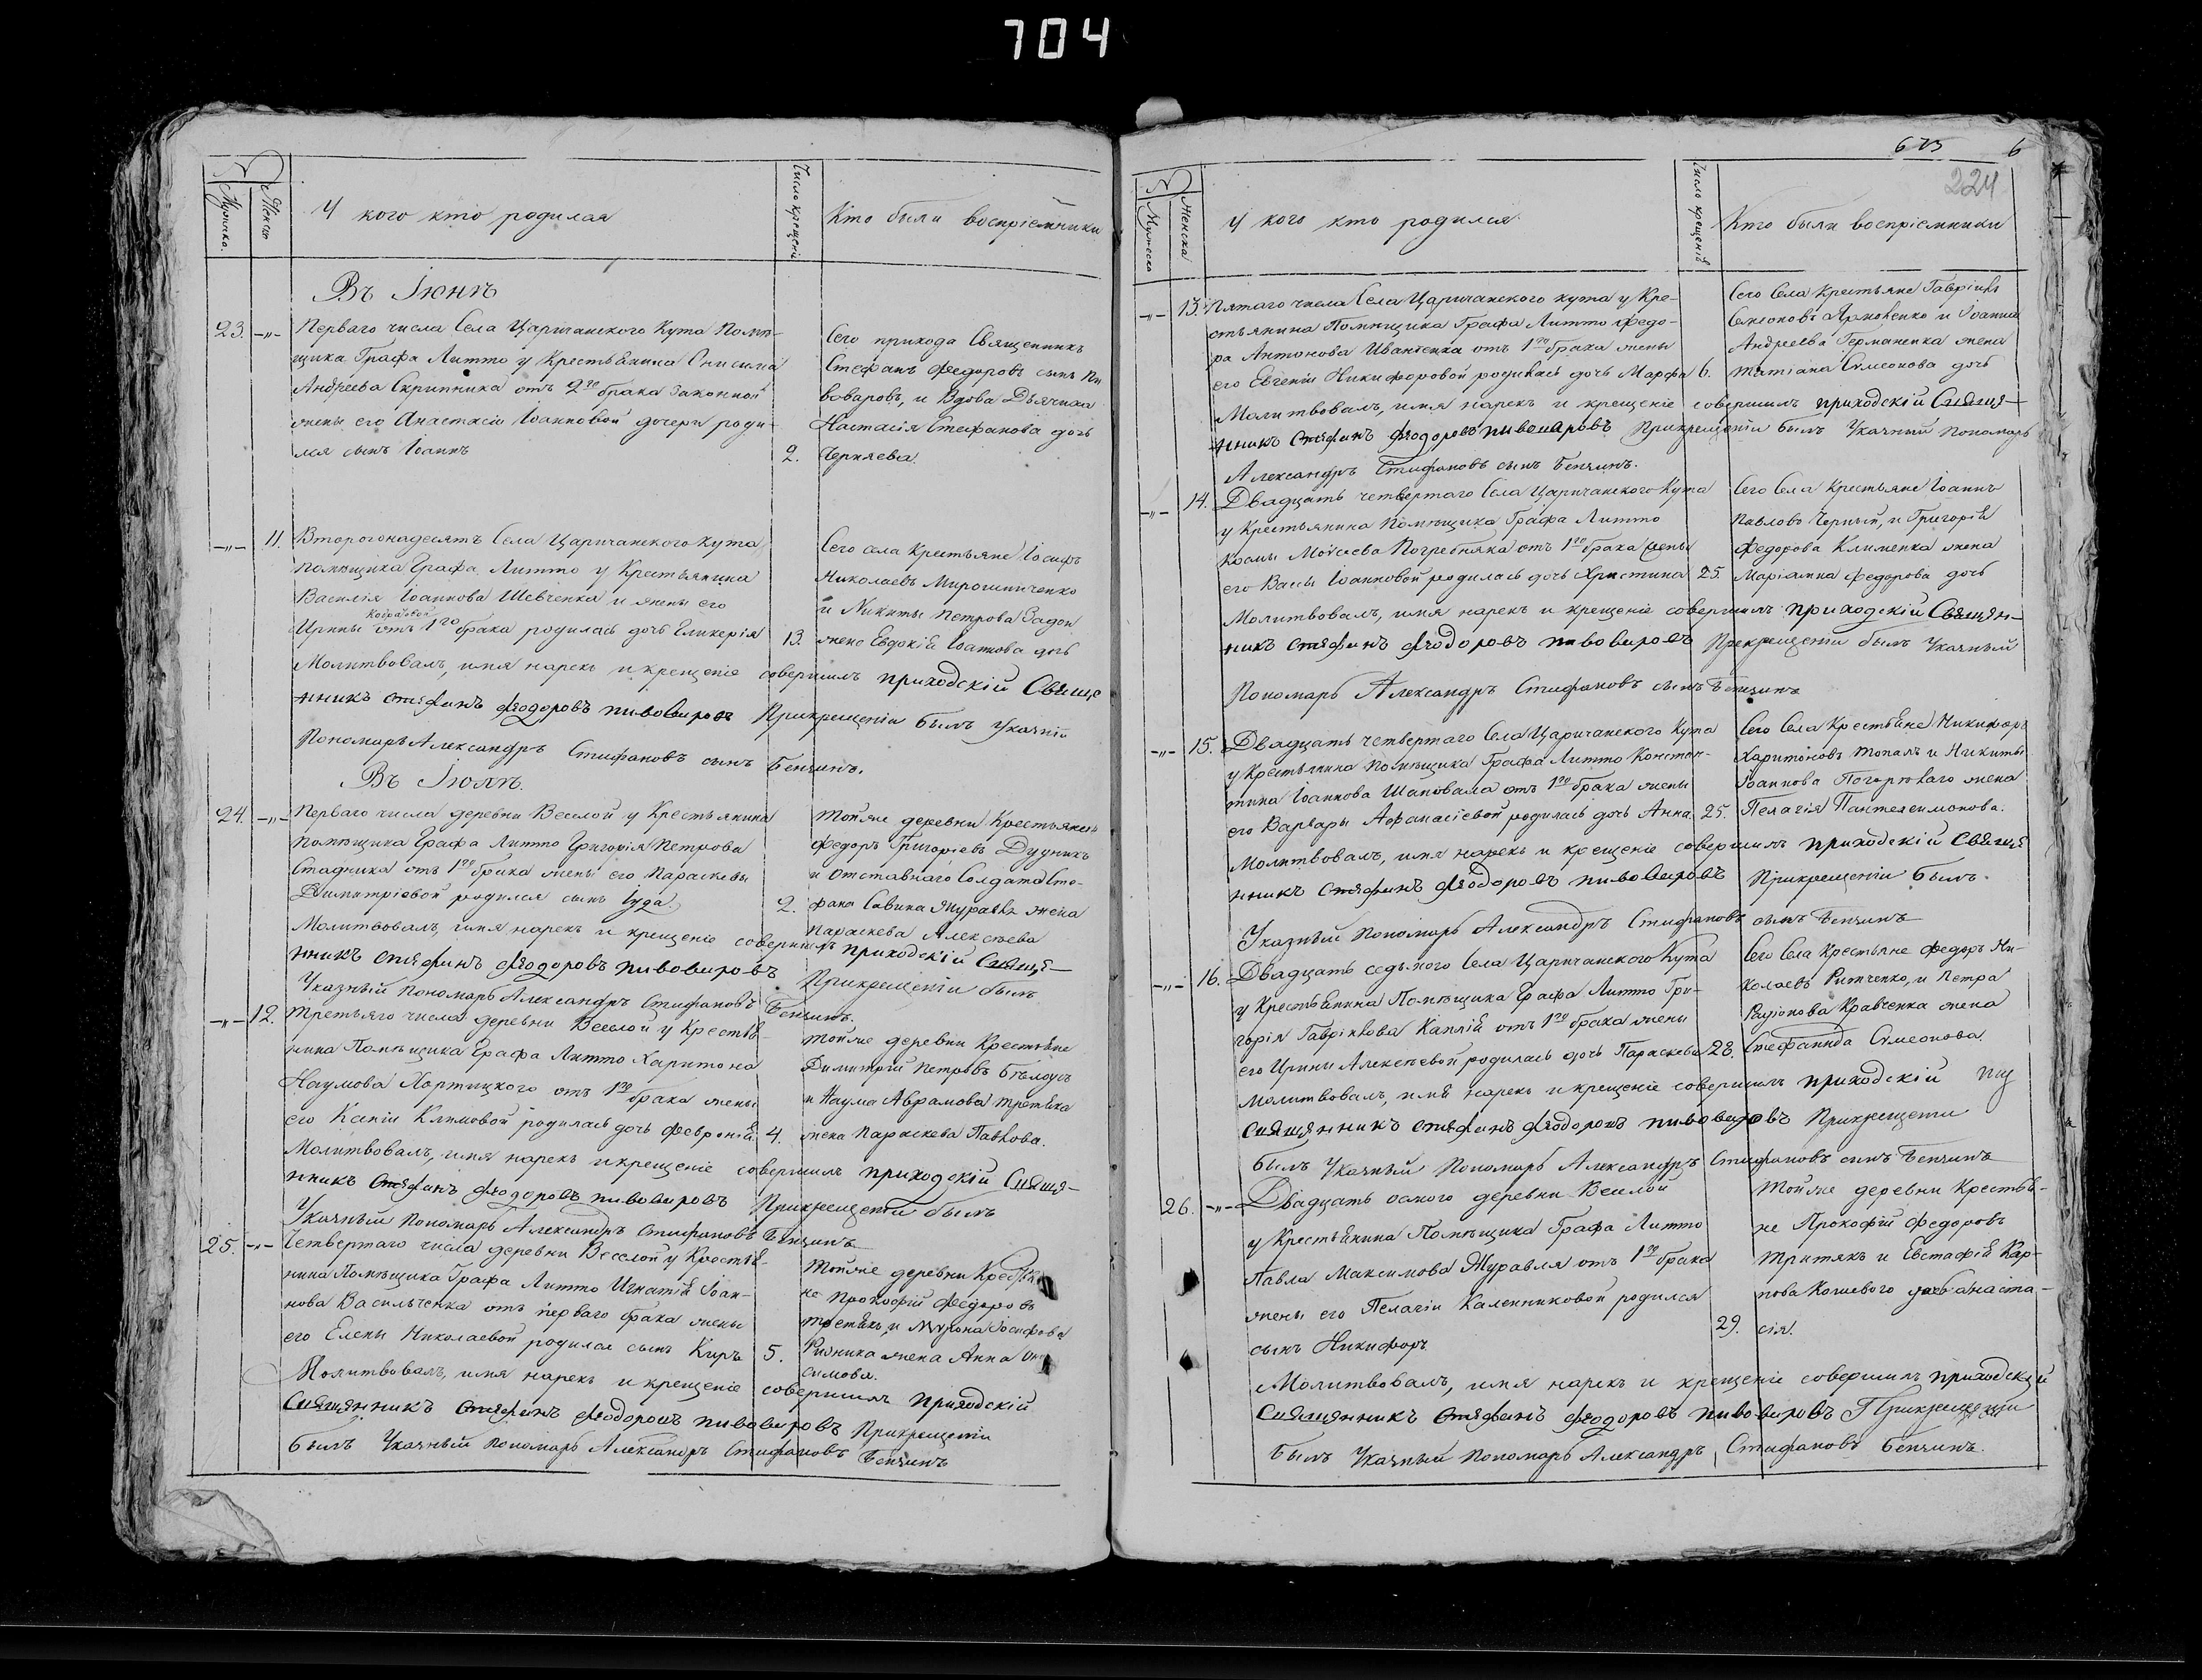 704
№
Мужеска.
Женска
У кого кто родился
Число крещенія
Кто были воспріемники
Въ Іюнѣ
23. -„- Перваго числа Села Царичанского Кута Помѣ-
щика Графа Литто у Крестьянина Онисима
Андреева Скрипника отъ 2го брака законной
жены его Анастасіи Іоанновой дочери роди-
лся сынъ Іоаннъ
2.
Сего прихода Священникъ
Стефанъ Федоровъ сынъ Пи
воваровъ, и Вдова Дьячиха
Настасія Стефанова дочь
Черняева.
-„- 11. Второгонадесять Села Царичанского кута
помѣщика Графа Литто у Крестьянина
Василія Іоаннова Шевченка и жены его
Ирины отъ 1го брака родилась дочь Гликерія
13.
Сего села Крестьяне Іосифъ
Николаевъ Мирошниченко
и Никиты Петрова Задои
жена Евдокія Іоаннова дочь
Молитвовалъ, имя нарекъ и крещеніе совершилъ приходскій Свяще
нникъ стефанъ феодоровъ пивоваровъ Прикрещеніи былъ указній
Пономарь Александръ Стифановъ сынъ Бенчинъ.
Въ Іюлѣ.
24. -„- Перваго числа деревни Веселой у Крестьянина
помѣщика Графа Литто Григорія Петрова
Стадника отъ 1го брака жены его Параскевы
Димитріевой родился сынъ Іуда
2.
Тойже деревни Крестьянинъ
Федоръ Григорьевъ Дудникъ
и отставнаго Солдата Сте-
фана Савина Журавля жена
Параскева Алексѣева
Молитвовалъ, имя нарекъ и крещеніе совершилъ приходскій Свяще-
нникъ стефанъ феодоровъ пивоваровъ Прикрещеніи былъ
Указный пономарь Александръ Стифановъ Бенчинъ.
-„- 12. Третьяго числа деревни Веселой у Крестья-
нина Помѣщика Графа Литто Харитона
Наумова Хортицкого отъ 1го брака жены
его Ксеніи Климовой родилась дочь Февронія
4.
Тойже деревни Крестьяне
Димитрій Петровъ Бѣлоусъ
и Наума Аврамова Третяка
жена Параскева Павлова.
Молитвовалъ, имя нарекъ и крещеніе совершилъ приходскій Свяще-
нникъ Стефанъ феодоровъ пивоваровъ Прикрещеніи былъ
Указный пономарь Александръ Стифановъ Бенчинъ
25. -„- Четвертаго числа деревни Веселой у Крестья-
нина Помѣщика Графа Литто Игнатія Іоан-
нова Васильченка отъ перваго брака жены
его Елены Николаевой родился сынъ Киръ
5.
Тойже деревни Крестья
не Прокофій Федоровъ
третякъ, и Мирона Іосифова
Рудника жена Анна Они
симова.
Молитвовалъ, имя нарекъ и крещеніе совершилъ приходскій
Священникъ Стефанъ феодоровъ пивоваровъ Прикрещеніи
былъ Указный пономарь Александръ Стифановъ Бенчинъ
673
6
224
№
Мужеска
Женска
У кого кто родился
Число крещенія
Кто были воспріемники
-„- 13. Пятаго числа Села Царичанского кута у Кре-
стьянина Помѣщика Графа Литто Федо-
ра Антонова Иванченка отъ 1го брака жены
его Евгеніи Никифоровой родилась дочь Марфа
6.
Сего Села Крестьяне Гавріилъ
Симеоновъ Ярмоленко и Іоанна
Андреева Германенка жена
Татіана Симеонова дочь
Молитвовалъ, имя нарекъ и крещеніе совершилъ приходскій Свяще-
нникъ Стефанъ феодоровъ пивоваровъ Прикрещеніи былъ Указный пономарь
Александръ Стифановъ сынъ Бенчинъ.
-„- 14. Двадцать четвертаго Села Царичанского Кута
у Крестьянина помѣщика Графа Литто
Космы Моѵсеева Погребняка отъ 1го брака жены
его Вассы Іоанновой родилась дочь Христина
25.
Сего Села Крестьяне Іоаннъ
Павловъ Черный, и Григорія
Федорова Клименка жена
Маріамна Федорова дочь
Молитвовалъ, имя нарекъ и крещеніе совершилъ приходскій Священ-
никъ стефанъ феодоровъ пивоваровъ Прикрещеніи былъ Указный
Пономарь Александръ Стифановъ сынъ Бенчинъ
-„- 15. Двадцать четвертаго Села Царичанского Кута
у Крестьянина помѣщика Графа Литто Констан-
тина Іоаннова Шаповала отъ 1го брака жены
его Варвары Афанасіевой родилась дочь Анна.
25.
Сего Села Крестьяне Никифоръ
Харитоновъ Топалъ и Никиты
Іоаннова Погорѣлаго жена
Пелагія Пантелеимонова.
Молитвовалъ, имя нарекъ и крещеніе совершилъ приходскій Свяще
нникъ стефанъ феодоровъ пивоваровъ Прикрещеніи былъ.
Указный пономарь Александръ Стифановъ сынъ Бенчинъ
-„- 16. Двадцать седьмого Села Царичанского Кута
у Крестьянина Помѣщика Графа Литто Гри-
горія Гавріилова Каплія отъ 1го брака жены
его Ирины Алексѣевой родилась дочь Параскева
28.
Сего Села Крестьяне Федоръ Ни-
колаевъ Ритченко, и Петра
Родіонова Кравченка жена
Стефанида Симеонова.
Молитвовалъ, имя нарекъ и крещеніе совершилъ приходскій
священникъ стефанъ феодоровъ пивоваровъ Прикрещеніи
былъ Указный Пономарь Александръ Стифановъ сынъ Бенчинъ
26. -„- Двадцать осмого деревни Веселой
у Крестьянина Помѣщика Графа Литто
Павла Максимова Журавля отъ 1го брака
жены его Пелагіи Каленниковой родился
сынъ Никифоръ
29.
Тойже деревни Крестья-
не Прокофій Федоровъ
Третякъ и Евстафія Кар-
пова Кошевого дочь анаста-
сія.
Молитвовалъ, имя нарекъ и крещеніе совершилъ приходскій
Священникъ Стефанъ феодоровъ пивоваровъ Прикрещеніи
былъ Указный пономарь Александръ Стифановъ Бенчинъ.